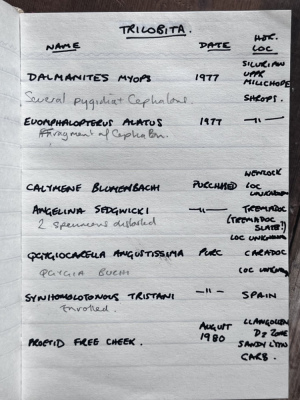 TRILOBITA.
NAME DATE HOR. LOC
DALMANITES MYOPS 1977 SILURIAN UPPR MILLICHOPE SHROPS.
Several pygidia + Cephalons.
EUOMPHALOPTERUS ALATUS 1977 —"—
A fragment of Cephalon.
CALYMENE BLUMENBACHI PURCHASED WENLOCK LOC UNKNOWN
ANGELINA SEDGWICKI —"— TREMADOC (TREMADOC SLATE?) LOC UNKNOWN
2 specimens distorted
OGYGIOCARELLA ANGUSTISSIMA PURC CARADOC
OGYGIA BUCHI LOC UNKNOWN
SYNHOMOLOTONOUS TRISTANI —"— SPAIN
Enrolled.
PROETID FREE CHEEK. AUGUST 1980 LLANGOLLEN D2 ZONE CARB.